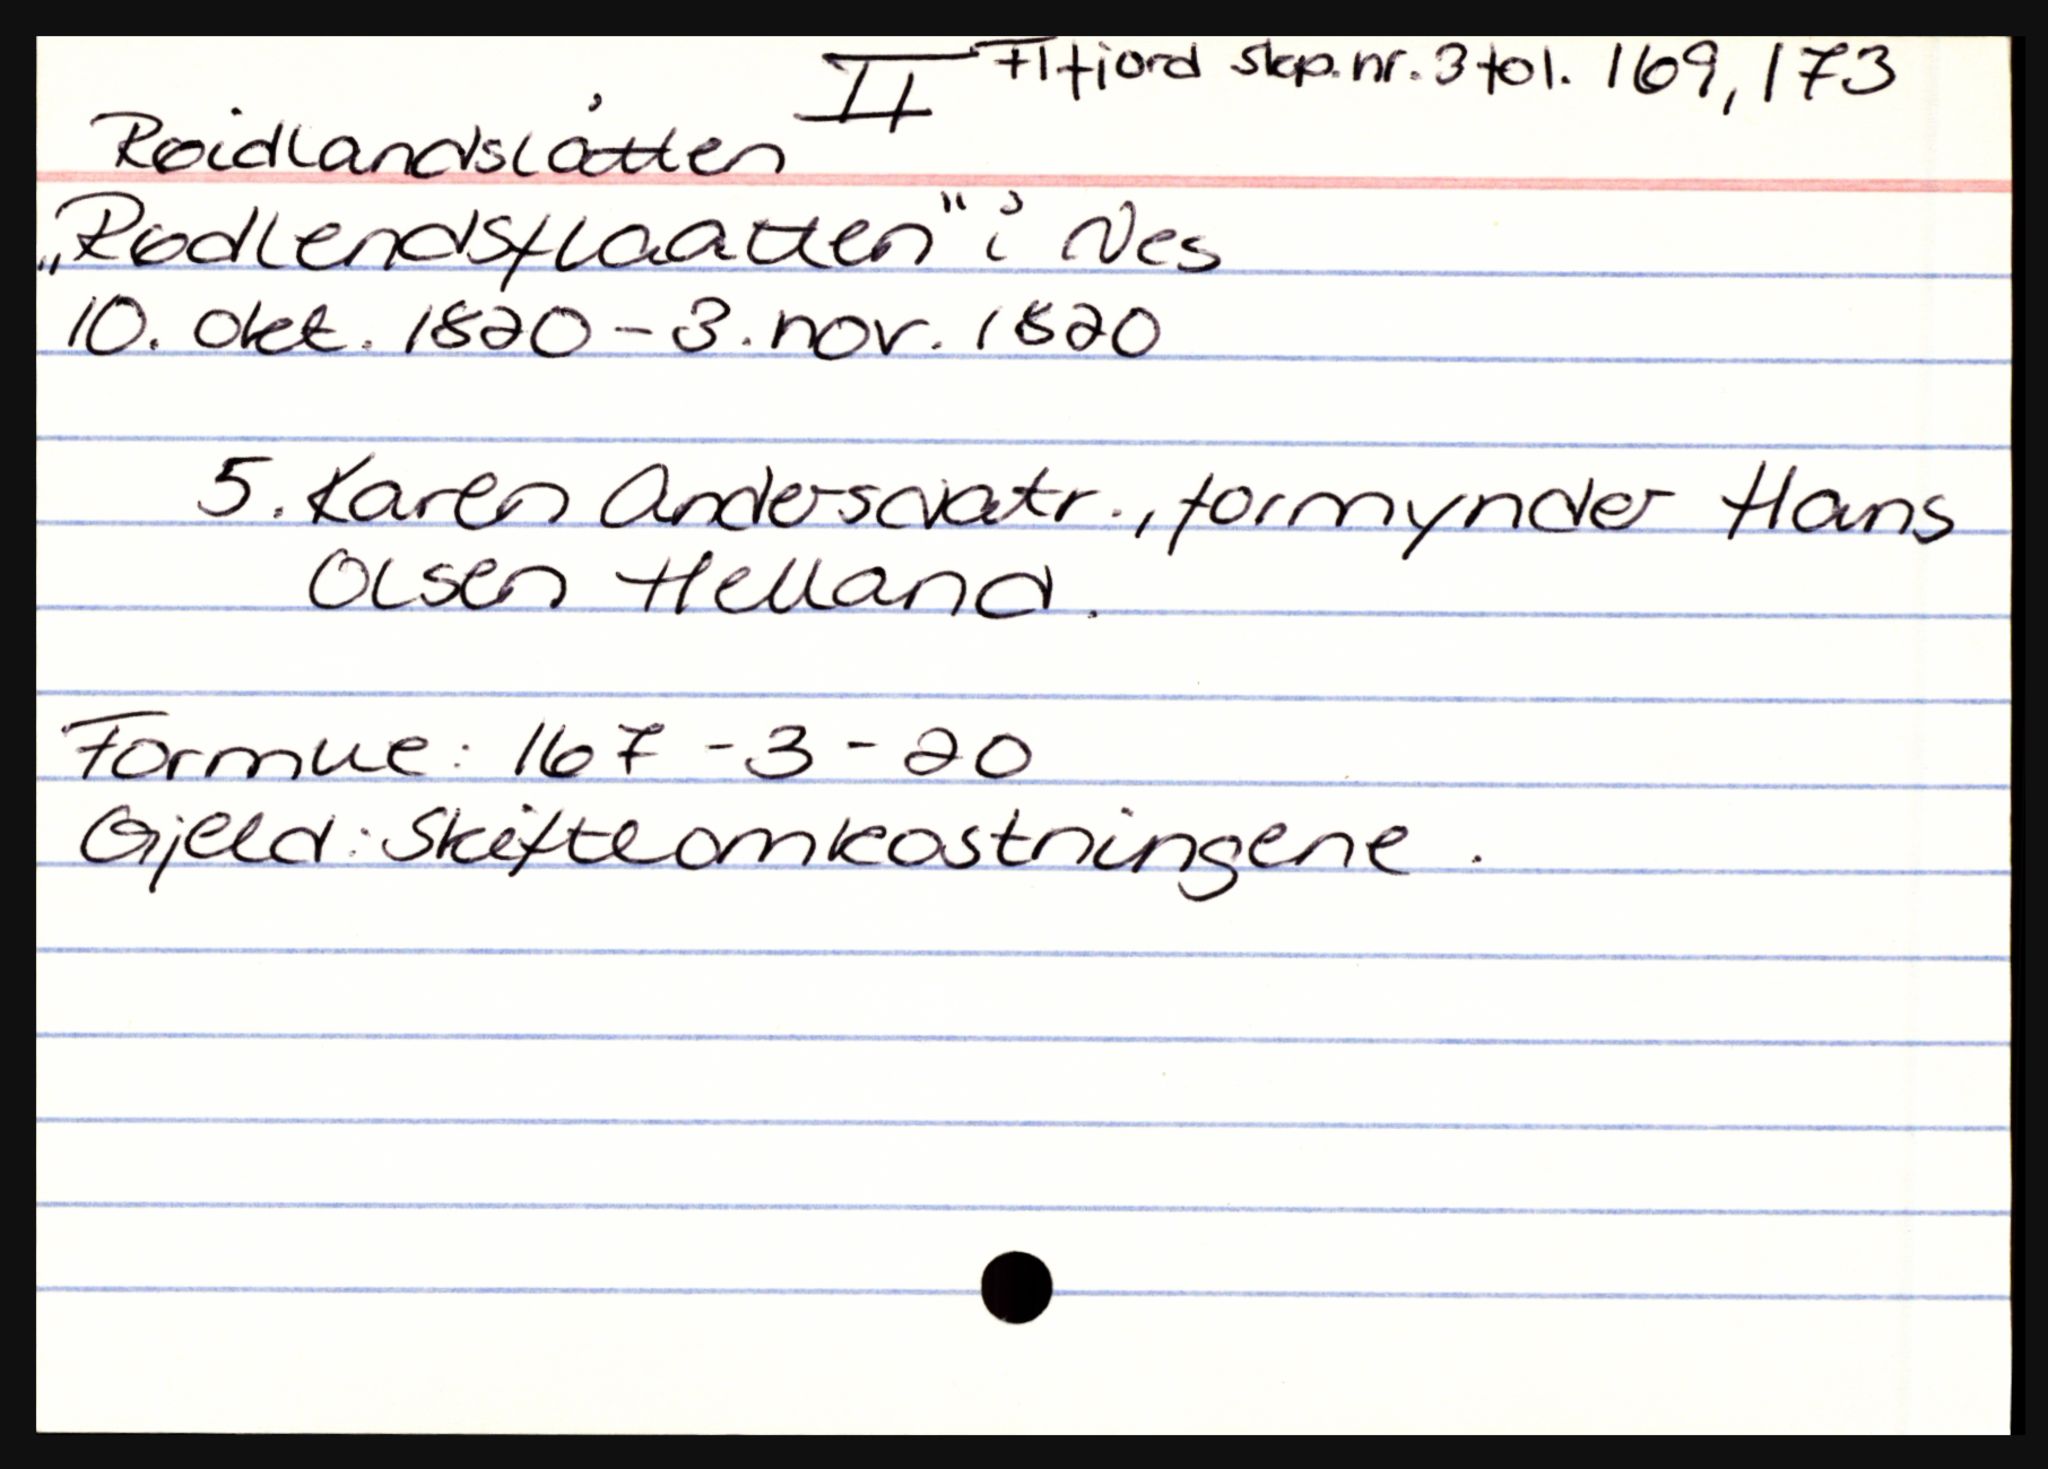 II Flfjord Skp.nr. 3 fol. 169, 173
Røidlandslåtten
„Rødlendsflaatten" i Nes
10. okt. 1820 - 3. nov. 1820
5. Karen Andersdatr., formynder Hans
Olsen Helland.
Formue: 167 - 3 - 20
Gjeld: Skifteomkostningene.